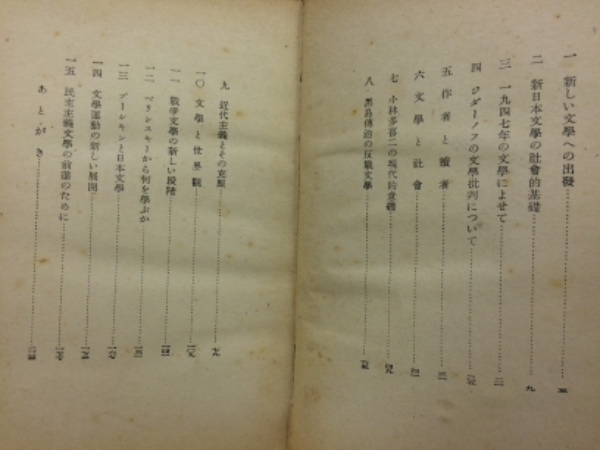 一 新しい文學への出發
二 新日本文學の社會的基礎 九
三 一九四七年の文學によせて
四 ジダーノフの文學批判について
五 作者と讀者
六 文學と社會
七 小林多喜二の現代的意義
八 黒島傳治の反戰文學
九 近代主義とその克服
一〇 文學と世界觀
一一 戰爭文學の新しい段階
一二 ベリンスキーから何を學ぶか
一三 プーシキンと日本文學
一四 文學運動の新しい展開
一五 民主主義文學の前進のために
あとがき